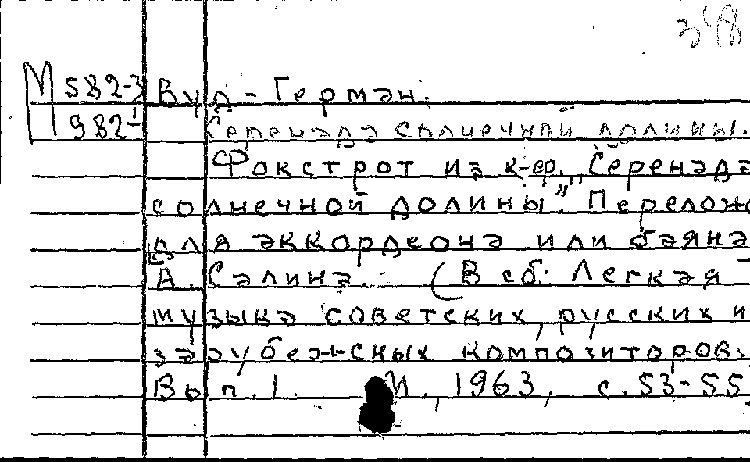 348
М 582-3 Вуд-Герман.
982- Серенада солнечной долины.
Фокстрот из к-ф. „Серенада
солнечной долины". Перелож
для аккордеона или баяна
А. Салина. (В сб: Легкая
музыка советских, русских и
зарубежных композиторов.
Вып. 1. М., 1963, с. 53-55